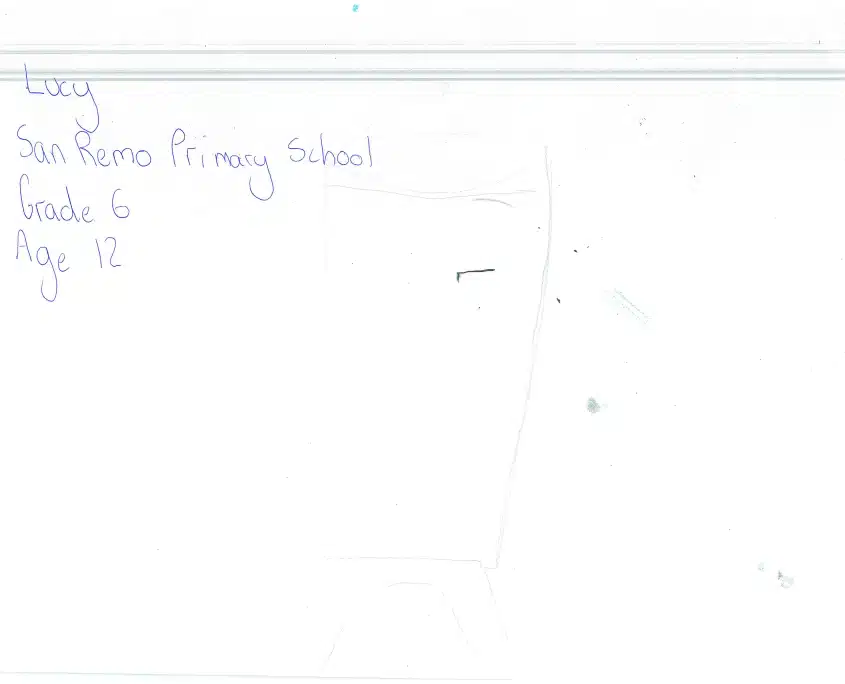 Lucy
San Remo Primary School
Grade 6
Age 12